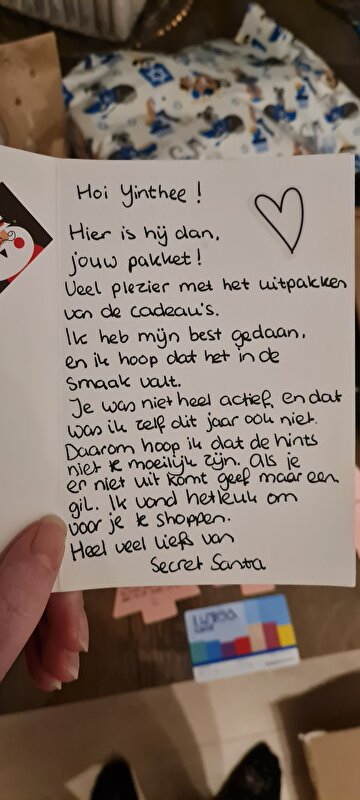 Hoi Yinthee!
Hier is hij dan,
jouw pakket!
Veel plezier met het uitpakken
van de cadeau's.
Ik heb mijn best gedaan,
en ik hoop dat het in de
smaak valt.
Je was niet heel actief, en dat
was ik zelf dit jaar ook niet.
Daarom hoop ik dat de hints
niet te moeilijk zijn. Als je
er niet uit komt geef maar een
gil. Ik vond het leuk om
voor je te shoppen.
Heel veel liefs van
Secret Santa